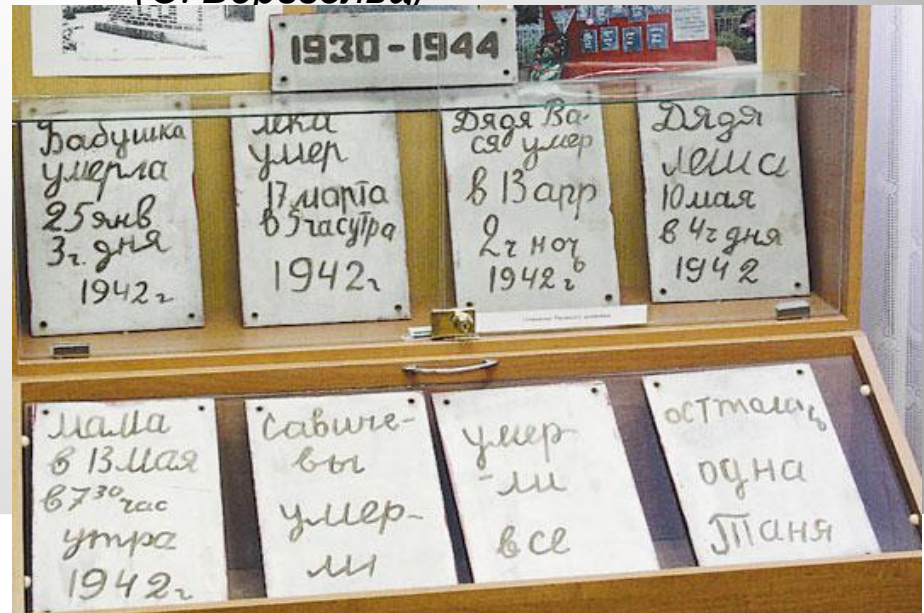 1930-1944
Бабушка
умерла
25 янв
3 г. дня
1942 г
Лека
умер
17 марта
в 5 час утра
1942 г
Дядя Ва-
ся умер
в 13 апр
2 ч ноч
ь
1942 г
Дядя
Леша
10 мая
в 4 ч дня
1942
мама
в 13 мая
в 7 30 час
утра
1942 г
Савиче-
вы
умер-
ли
умер-
-ли
все
осталась
одна
Таня